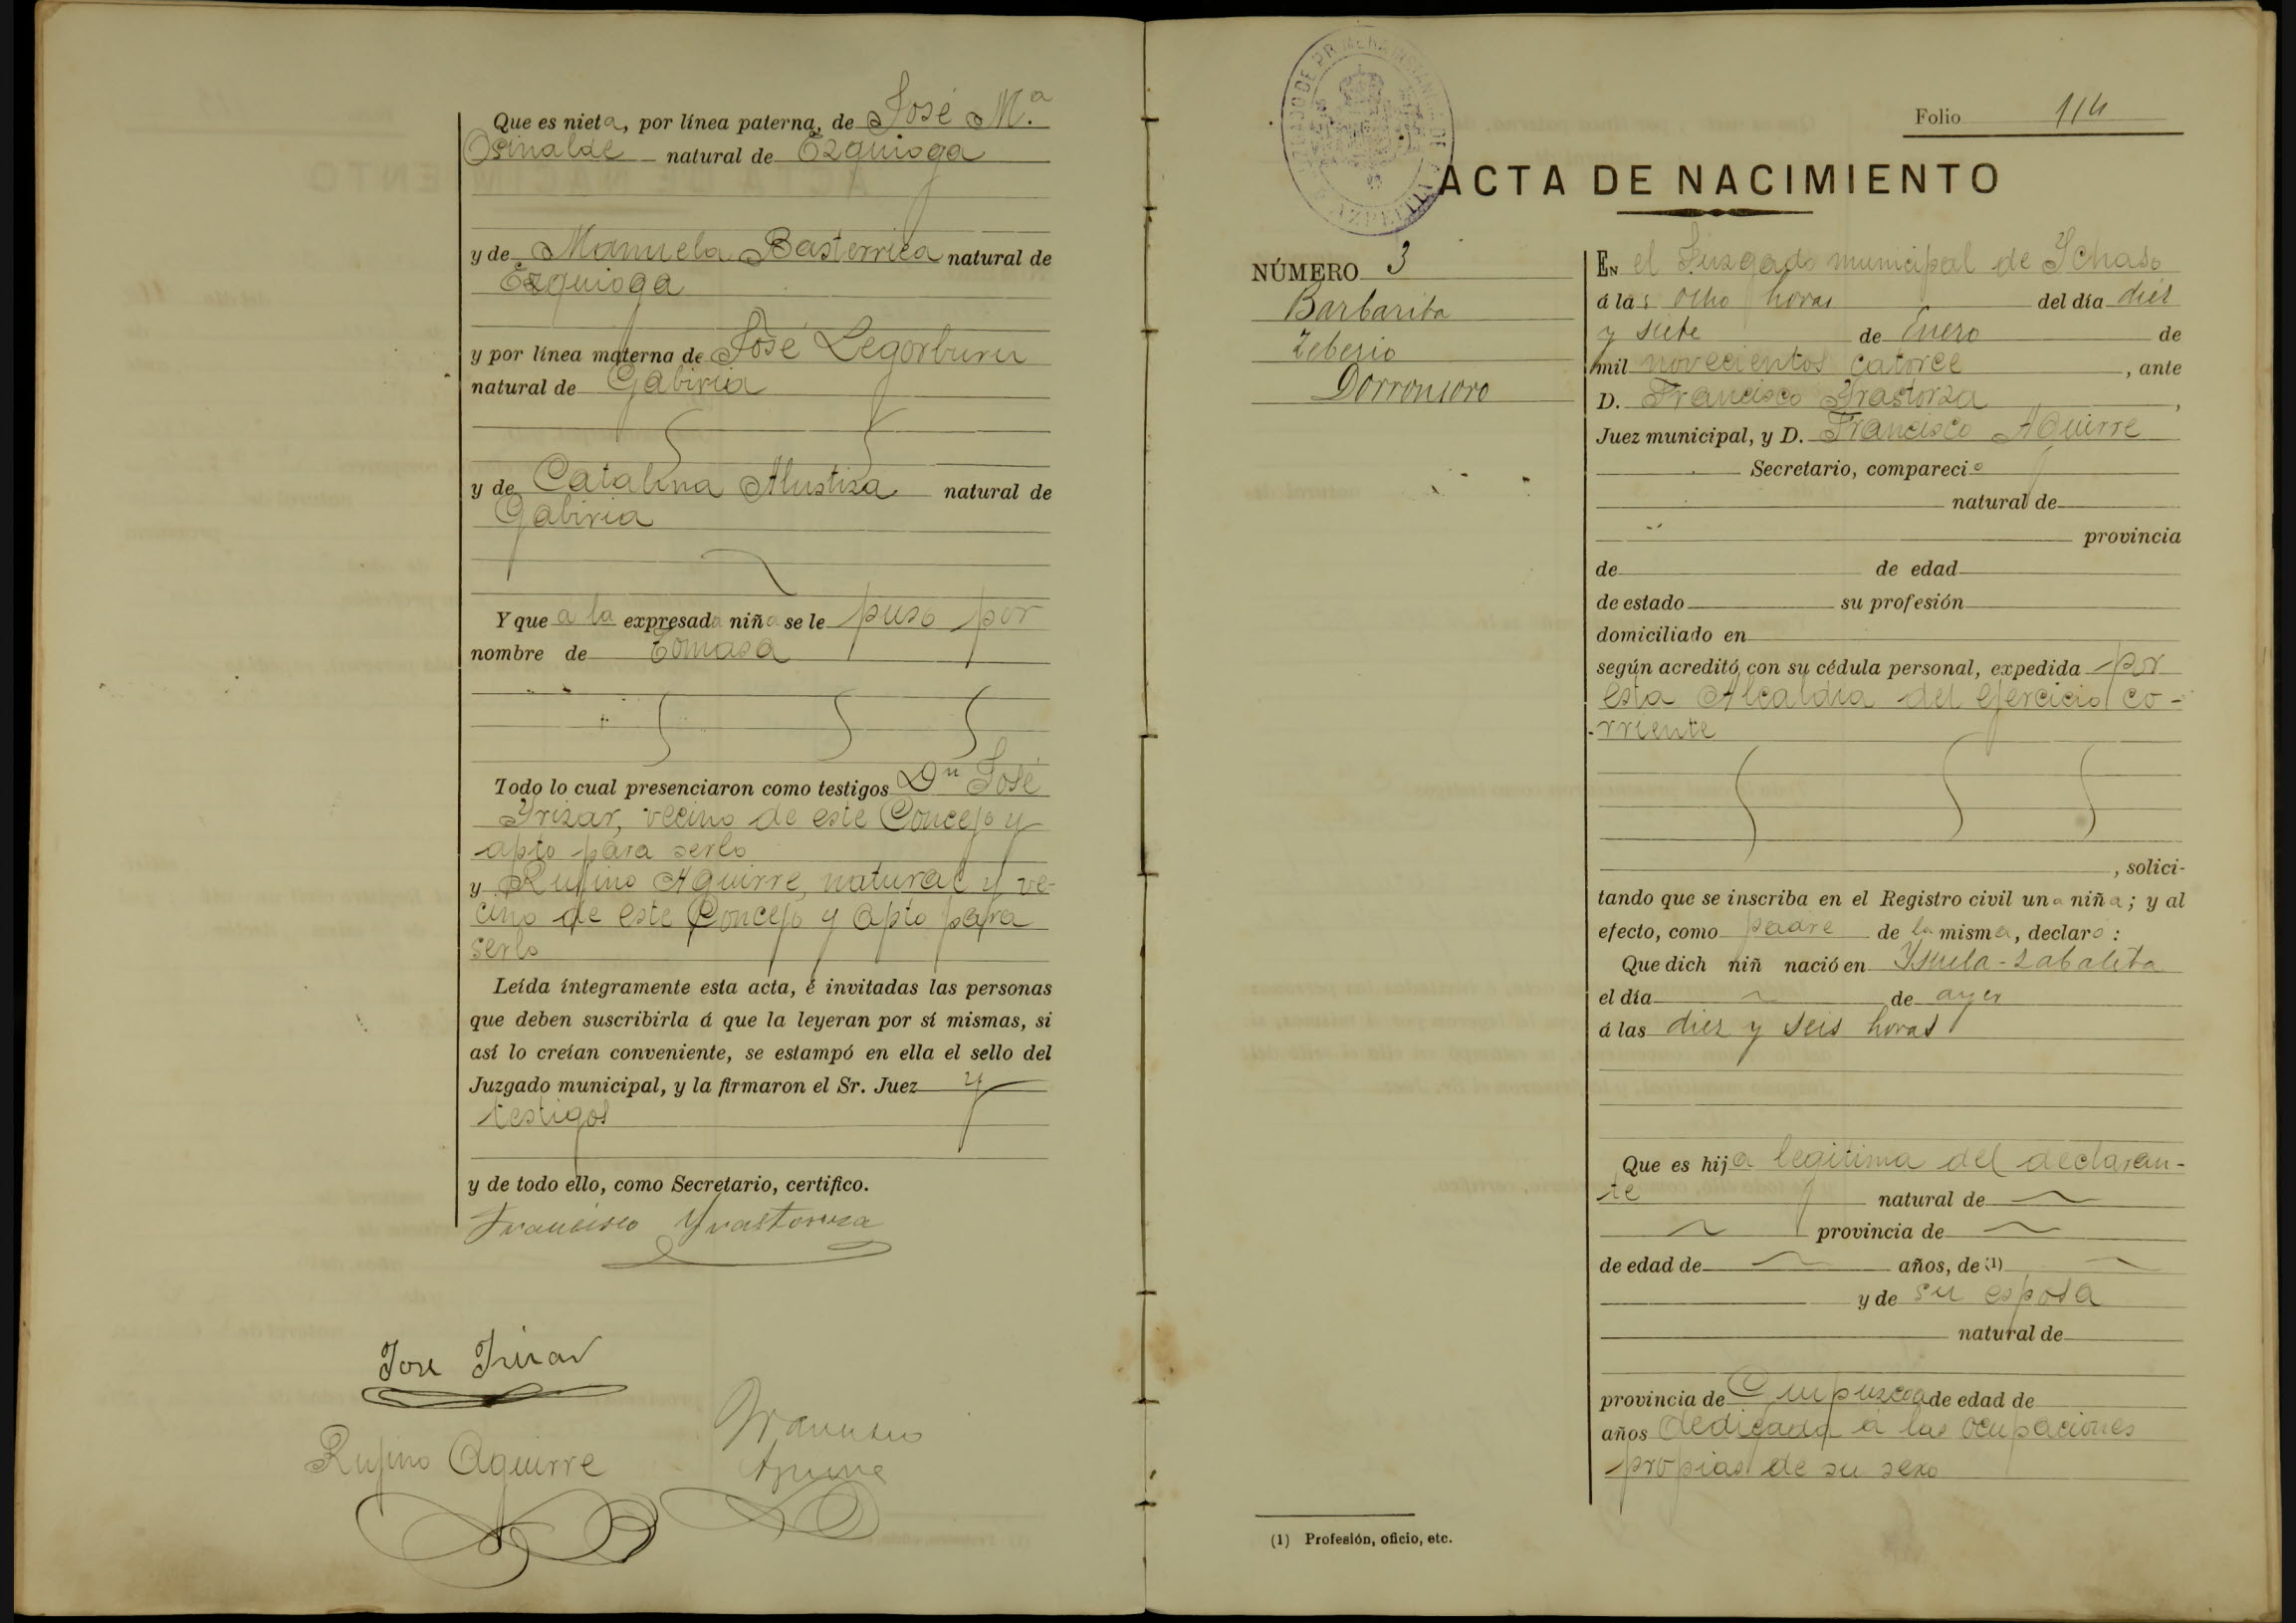 Que es nieta, por línea paterna, de José M.ª
Osinalde natural de Ezquioga
y de Manuela Basterrica natural de
Ezquioga
y por línea materna de José Legorburu
natural de Gabiria
y de Catalina Alustiza natural de
Gabiria
Y que a la expresada niña se le puso por
nombre de Tomasa
Todo lo cual presenciaron como testigos Dn José
Yrizar, vecino de este Concejo y
apto para serlo
y Rufino Aguirre, natural y ve-
cino de este Concejo y apto para
serlo
Leída íntegramente esta acta, é invitadas las personas
que deben suscribirla á que la leyeran por sí mismas, si
así lo creían conveniente, se estampó en ella el sello del
Juzgado municipal, y la firmaron el Sr. Juez y
testigos
y de todo ello, como Secretario, certifico.
Francisco Yrastorza
José Irizar
Rufino Aguirre
Francisco
Aguirre
JUZGADO DE PRIMERA INSTANCIA DE AZPEITIA
Folio 114
ACTA DE NACIMIENTO
NÚMERO 3
Barbarita
Zeberio
Dorronsoro
EN el Juzgado municipal de Ichaso
á las ocho horas del día diez
y siete de Enero de
mil novecientos catorce, ante
D. Francisco Yrastorza,
Juez municipal, y D. Francisco Aguirre
Secretario, compareció
natural de
provincia
de de edad
de estado su profesión
domiciliado en
según acreditó con su cédula personal, expedida por
esta Alcaldia del ejercicio co-
rriente
, solici-
tando que se inscriba en el Registro civil una niña; y al
efecto, como padre de la misma, declaro:
Que dich niñ nació en Ysuela-zabaleta
el día de ayer
á las diez y seis horas
Que es hija legitima del declaran-
te natural de
provincia de
de edad de años, de (1)
y de su esposa
natural de
provincia de Guipuzcoa de edad de
años dedicada á las ocupaciones
propias de su sexo
(1) Profesión, oficio, etc.